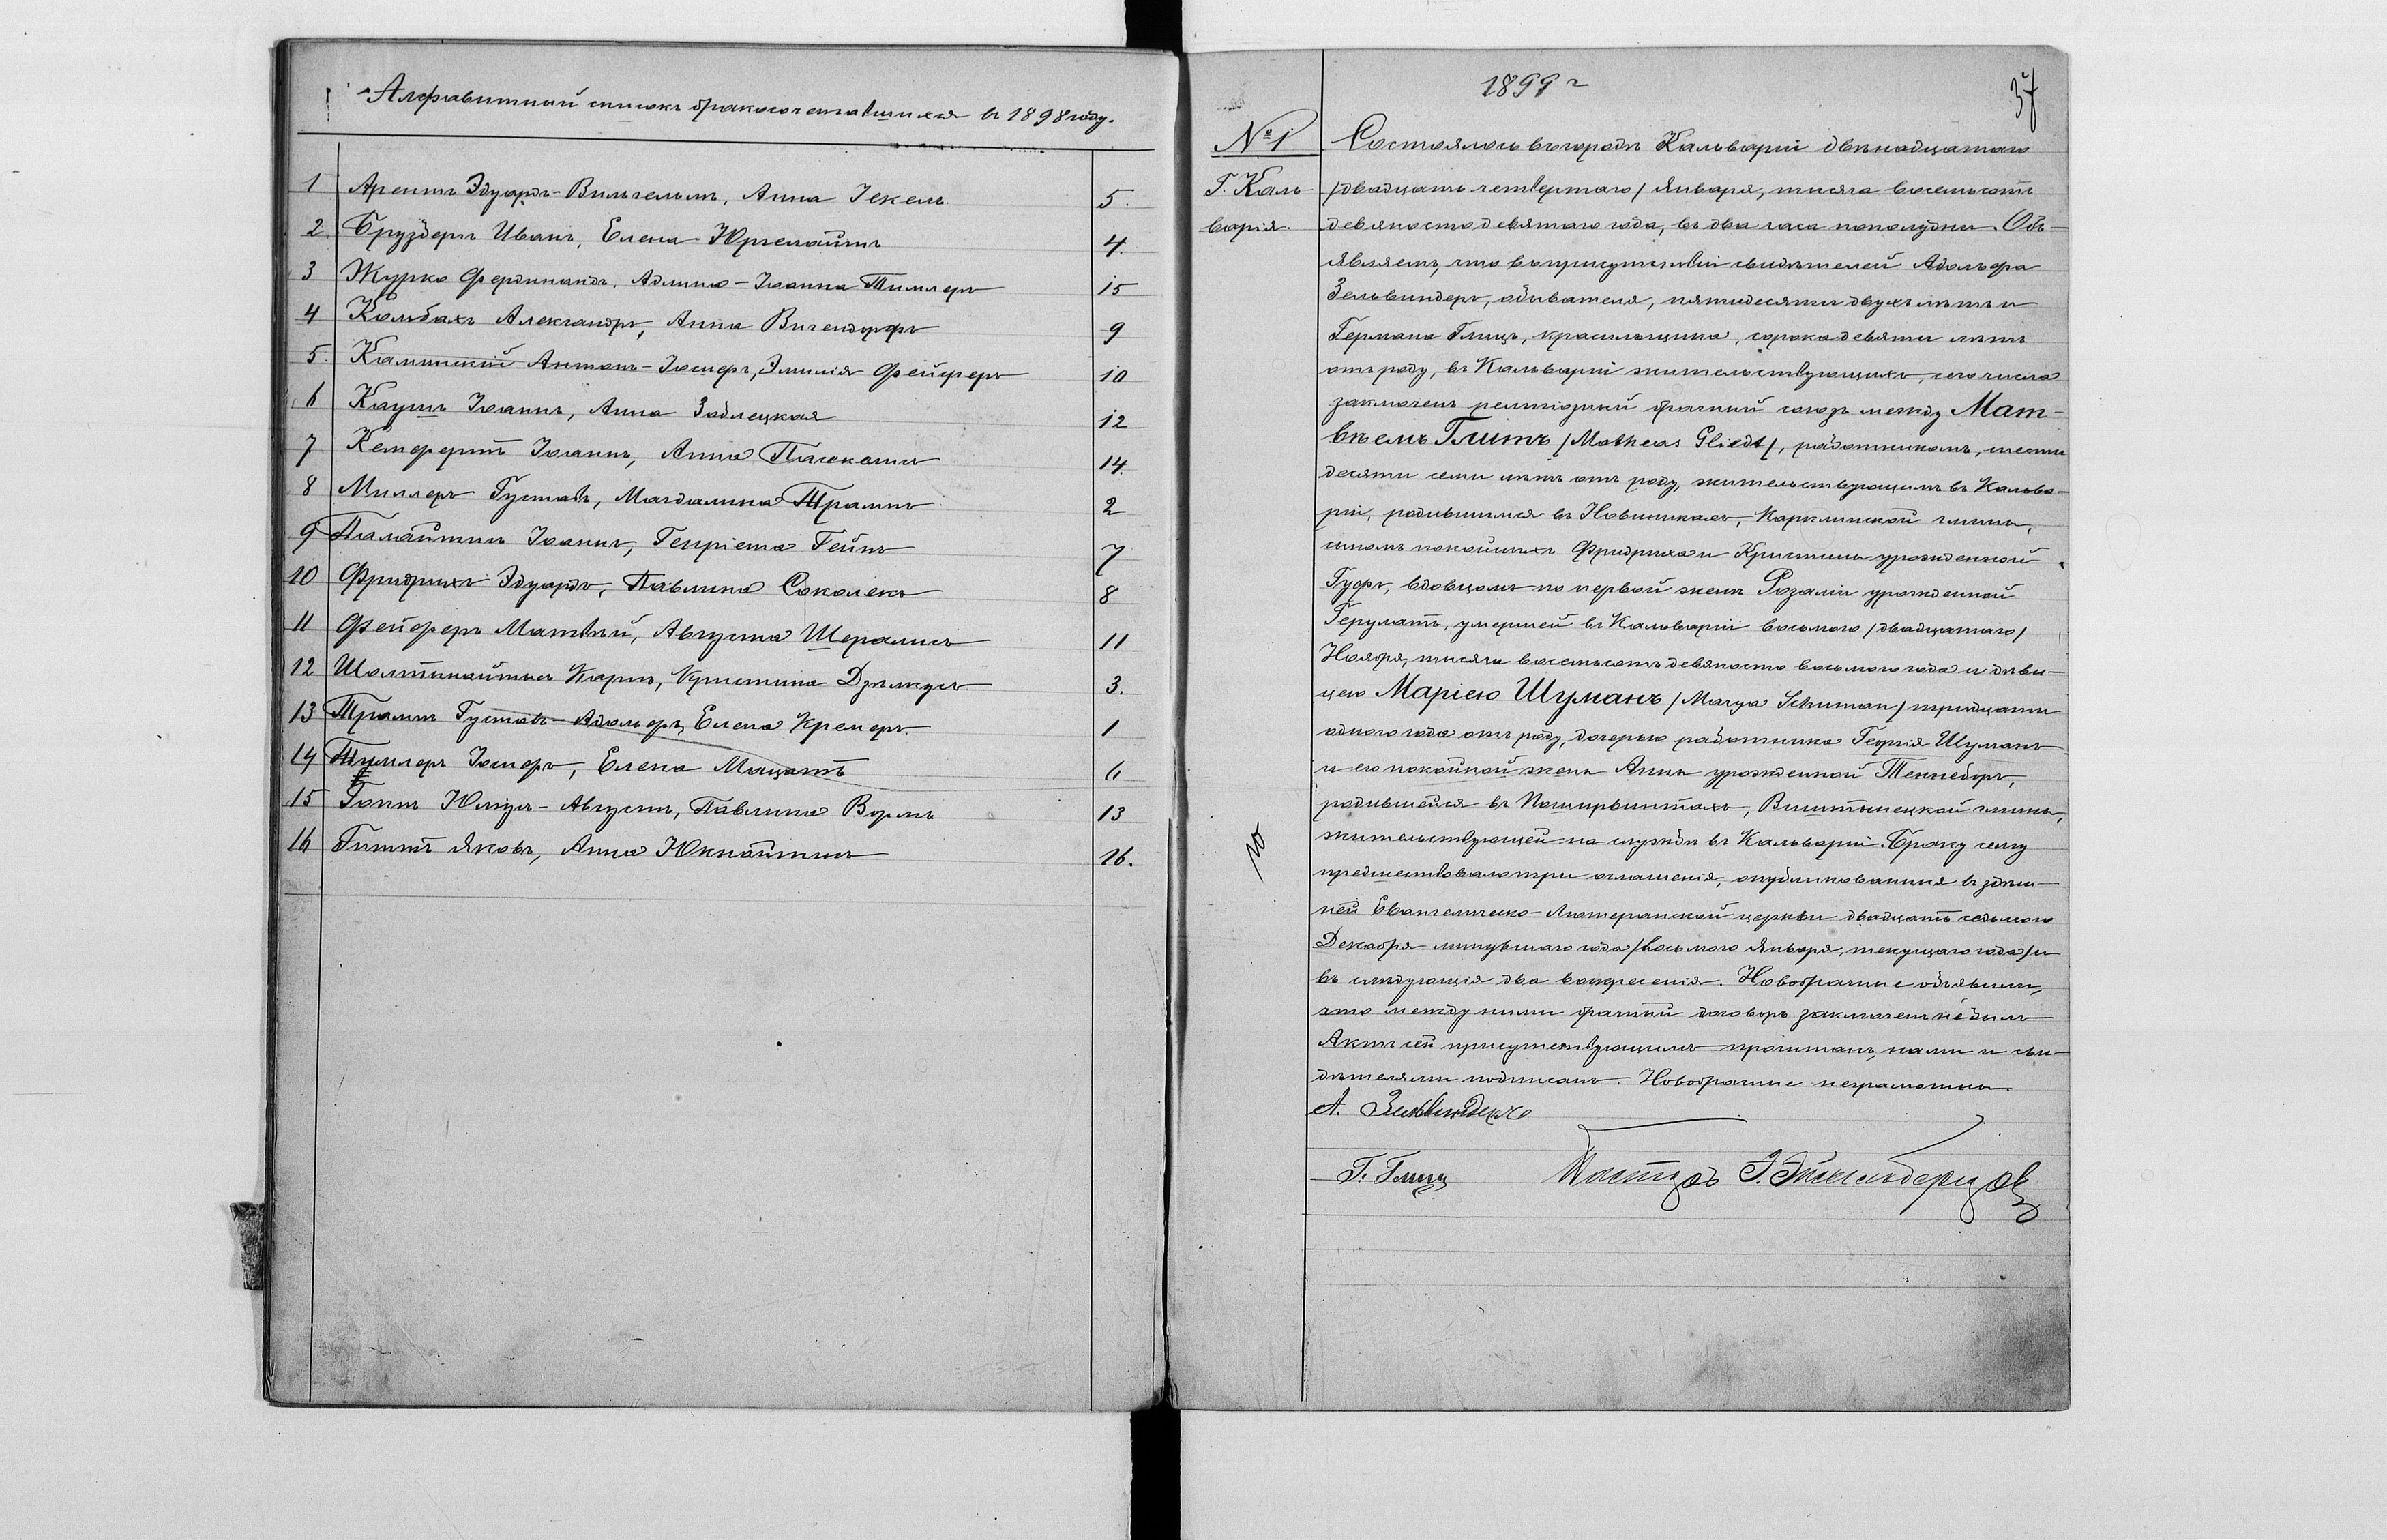 Алфавитный списокъ бракосочетавшихся въ 1898 году.
1 Арентъ Эдуардъ-Вильгельмъ, Анна Іекель 5.
2 Бруздеръ Иванъ, Елена Юргелайтисъ 4.
3 Журко Фердинандъ, Адлина-Іоанна Тиллеръ 15
4 Кольбахъ Александръ, Анна Вигендорфъ 9
5. Калинскій Антонъ-Іосифъ, Эмилія Фейферъ 10
6 Каушъ Іоаннъ, Анна Задлецкая 12
7 Кемфертъ Іоаннъ, Анна 14.
8 Миллеръ Густавъ, Магдалина Траммъ 2
9 Палайтисъ Іоаннъ, Генріета Гейнъ 7
10 Фридрихъ Эдуардъ, Павлина Соколекъ 8
11 Фейферъ Матвѣй, Августа Шералисъ 11
12 Карлъ, Кристина 3.
13 Траммъ Густавъ-Адольфъ, Елена Кремеръ 1
14 Іосифъ, Елена Мацатъ 6
15 Гоппъ Юліусъ-Августъ, Павлина Вормъ 13
16 Гиттъ Яковъ, Анна Юкнайтисъ 16.
1899 г
37
№ 1
Г. Каль
варія.
Состоялось въ городѣ Кальваріи двѣнадцатаго
/двадцать четвертаго/ Января, тысяча восемьсотъ
девяносто девятаго года, въ два часа пополудни. Объ-
являемъ, что въ присутствіи свидѣтелей Адольфа
Зельвиндеръ, обывателя, пятидесяти двухъ лѣтъ и
Германа Глицъ, красильщика, сорока девяти лѣтъ
отъ роду, въ Кальваріи жительствующихъ, сего числа
заключенъ религіозный брачный союзъ между Мат-
вѣемъ Глитъ /Matheas Gliedt/, работникомъ, шести
десяти семи лѣтъ отъ роду, жительствующимъ въ Кальва-
ріи, родившимся въ Новиникахъ, Карклинской гмины,
сыномъ покойныхъ Фридриха и Кристины урожденной
Гуфъ, вдовцомъ по первой женѣ Розаліи урожденной
Герулатъ, умершей въ Кальваріи восьмого /двадцатаго/
Ноября, тысяча восемьсотъ девяносто восьмого года и дѣви-
цею Маріею Шуманъ /Marya Schuman/ тридцати
одного года отъ роду, дочерью работника Георгія Шуманъ
и его покойной жены Анны урожденной Теннеборъ,
родившейся въ Поширвинтахъ, Виштынецкой гмины,
жительствующей на службѣ въ Кальваріи. Браку сему
предшествовало три оглашенія, опубликованныя въ здѣш-
ней Евангелическо-Лютеранской церкви двадцать седьмого
Декабря минувшаго года /восьмого Января, текущаго года/ и
въ слѣдующія два воскресенія. Новобрачные объявили,
что между ними брачный договоръ заключенъ не былъ
Актъ сей присутствующимъ прочитанъ, нами и сви-
дѣтелями подписанъ. Новобрачные неграмотны.
А. Зельвиндеръ
Г. Глицъ Пасторъ
10